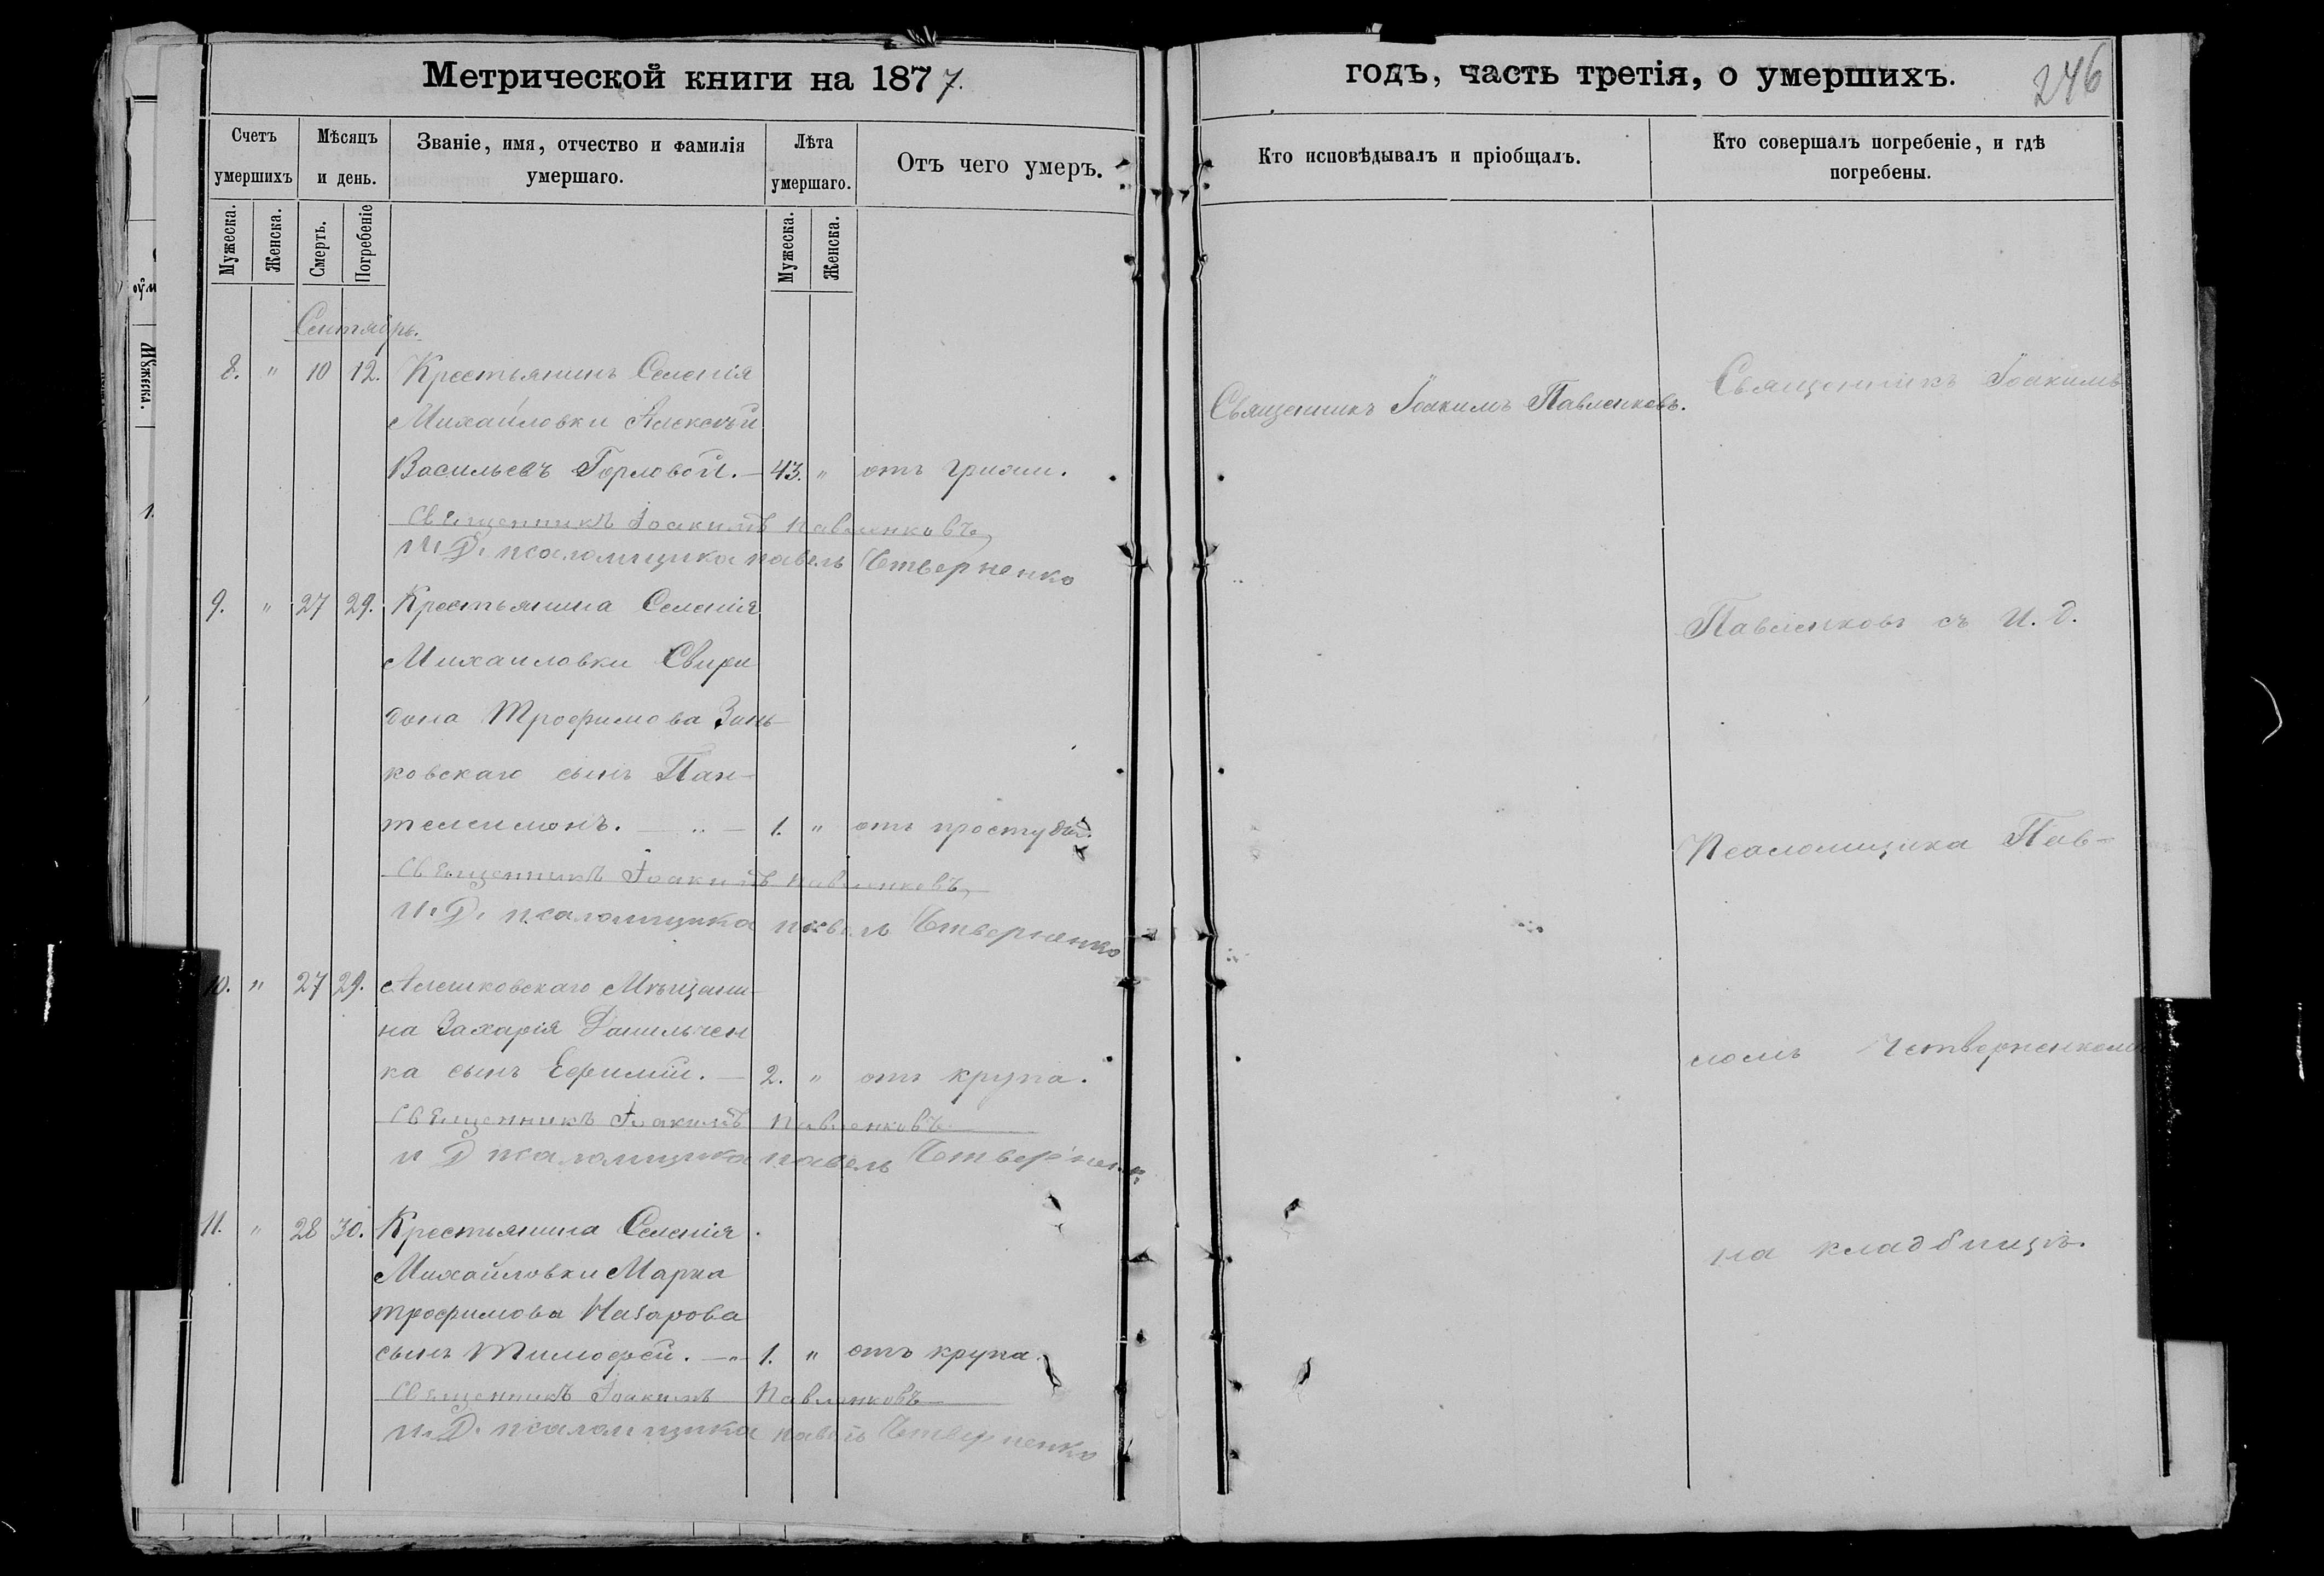 Метрической книги на 1877.
годъ, часть третія, о умершихъ.
246
Счетъ умершихъ
Мѣсяцъ и день.
Званіе, имя, отчество и фамилія умершаго.
Лѣта умершаго.
Отъ чего умеръ.
Кто исповѣдывалъ и пріобщалъ.
Кто совершалъ погребеніе, и гдѣ погребены.
Мужеска.
Женска.
Смерть.
Погребеніе
Мужеска.
Женска.
Сентябрь.
8. " 10 12. Крестьянинъ Селенія
Михайловки Алексѣй
Васильевъ Горловой. — 43. " отъ
Священникъ Іоакимъ Павленковъ
И. Д. псаломщика Павелъ Четверненко
9. " 27 29. Крестьянина Селенія
Михайловки Свири
дона Трофимова Зинь-
ковскаго сынъ Пан-
телеимонъ. — " — 1. " отъ простуды.
Священникъ Іоакимъ Павленковъ
И. Д. псаломщика Павелъ Четверненко
10. " 27 29. Алешковскаго Мѣщани-
на Захарія Данильчен
ка сынъ Ефимій. — 2. " отъ крупа.
Священникъ Іоакимъ Павленковъ
И Д псаломщика Павелъ Четверненко
11. " 28 30. Крестьянина Селенія
Михайловки Марка
Трофимова Назарова
сынъ Тимофей. — " — 1. " отъ крупа.
Священникъ Іоакимъ Павленковъ
И. Д. псаломщика Павелъ Четверненко
Священникъ Іоакимъ Павленковъ.
Священникъ Іоакимъ
Павленковъ съ И. д.
Псаломщика Пав-
ломъ Четверненкомъ
на кладбищѣ.